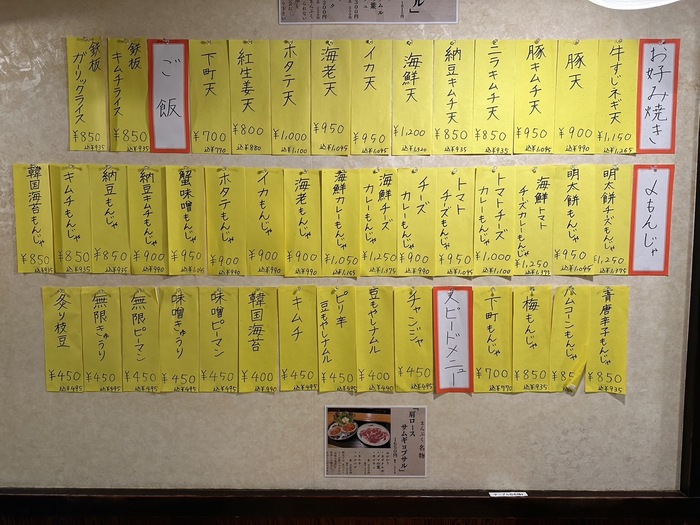 お好み焼き
牛すじネギ天 ¥1,150 込¥1,265
豚天 ¥900 込¥990
豚キムチ天 ¥950 込¥1,045
ニラキムチ天 ¥850 込¥935
納豆キムチ天 ¥850 込¥935
海鮮天 ¥1,200 込¥1,320
イカ天 ¥950 込¥1,045
海老天 ¥950 込¥1,045
ホタテ天 ¥1,000 込¥1,100
紅生姜天 ¥800 込¥880
下町天 ¥700 込¥770
ご飯
鉄板キムチライス ¥850 込¥935
鉄板ガーリックライス ¥850 込¥935
〆もんじゃ
明太餅チーズもんじゃ ¥1,250 込¥1,375
明太餅もんじゃ ¥950 込¥1,045
海鮮トマトチーズカレーもんじゃ ¥1,250 込¥1,375
トマトチーズカレーもんじゃ ¥1,000 込¥1,100
トマトチーズもんじゃ ¥950 込¥1,045
チーズカレーもんじゃ ¥900 込¥990
海鮮チーズカレーもんじゃ ¥1,250 込¥1,375
海鮮カレーもんじゃ ¥1,050 込¥1,155
海老もんじゃ ¥900 込¥990
イカもんじゃ ¥900 込¥990
ホタテもんじゃ ¥900 込¥990
蟹味噌もんじゃ ¥950 込¥1,045
納豆キムチもんじゃ ¥900 込¥990
納豆もんじゃ ¥850 込¥935
キムチもんじゃ ¥850 込¥935
韓国海苔もんじゃ ¥850 込¥935
青唐辛子もんじゃ ¥850 込¥935
ムコーンもんじゃ ¥85
梅もんじゃ ¥850 込¥935
下町もんじゃ ¥700 込¥770
スピードメニュー
チャンジャ ¥450 込¥495
豆もやしナムル ¥400 込¥440
ピリ辛豆もやしナムル ¥450 込¥495
キムチ ¥450 込¥495
韓国海苔 ¥400 込¥440
味噌ピーマン ¥450 込¥495
味噌きゅうり ¥450 込¥495
無限ピーマン ¥450 込¥495
無限きゅうり ¥450 込¥495
炙り枝豆 ¥450 込¥495
まんぷく名物
「肩ロースサムギョプサル」